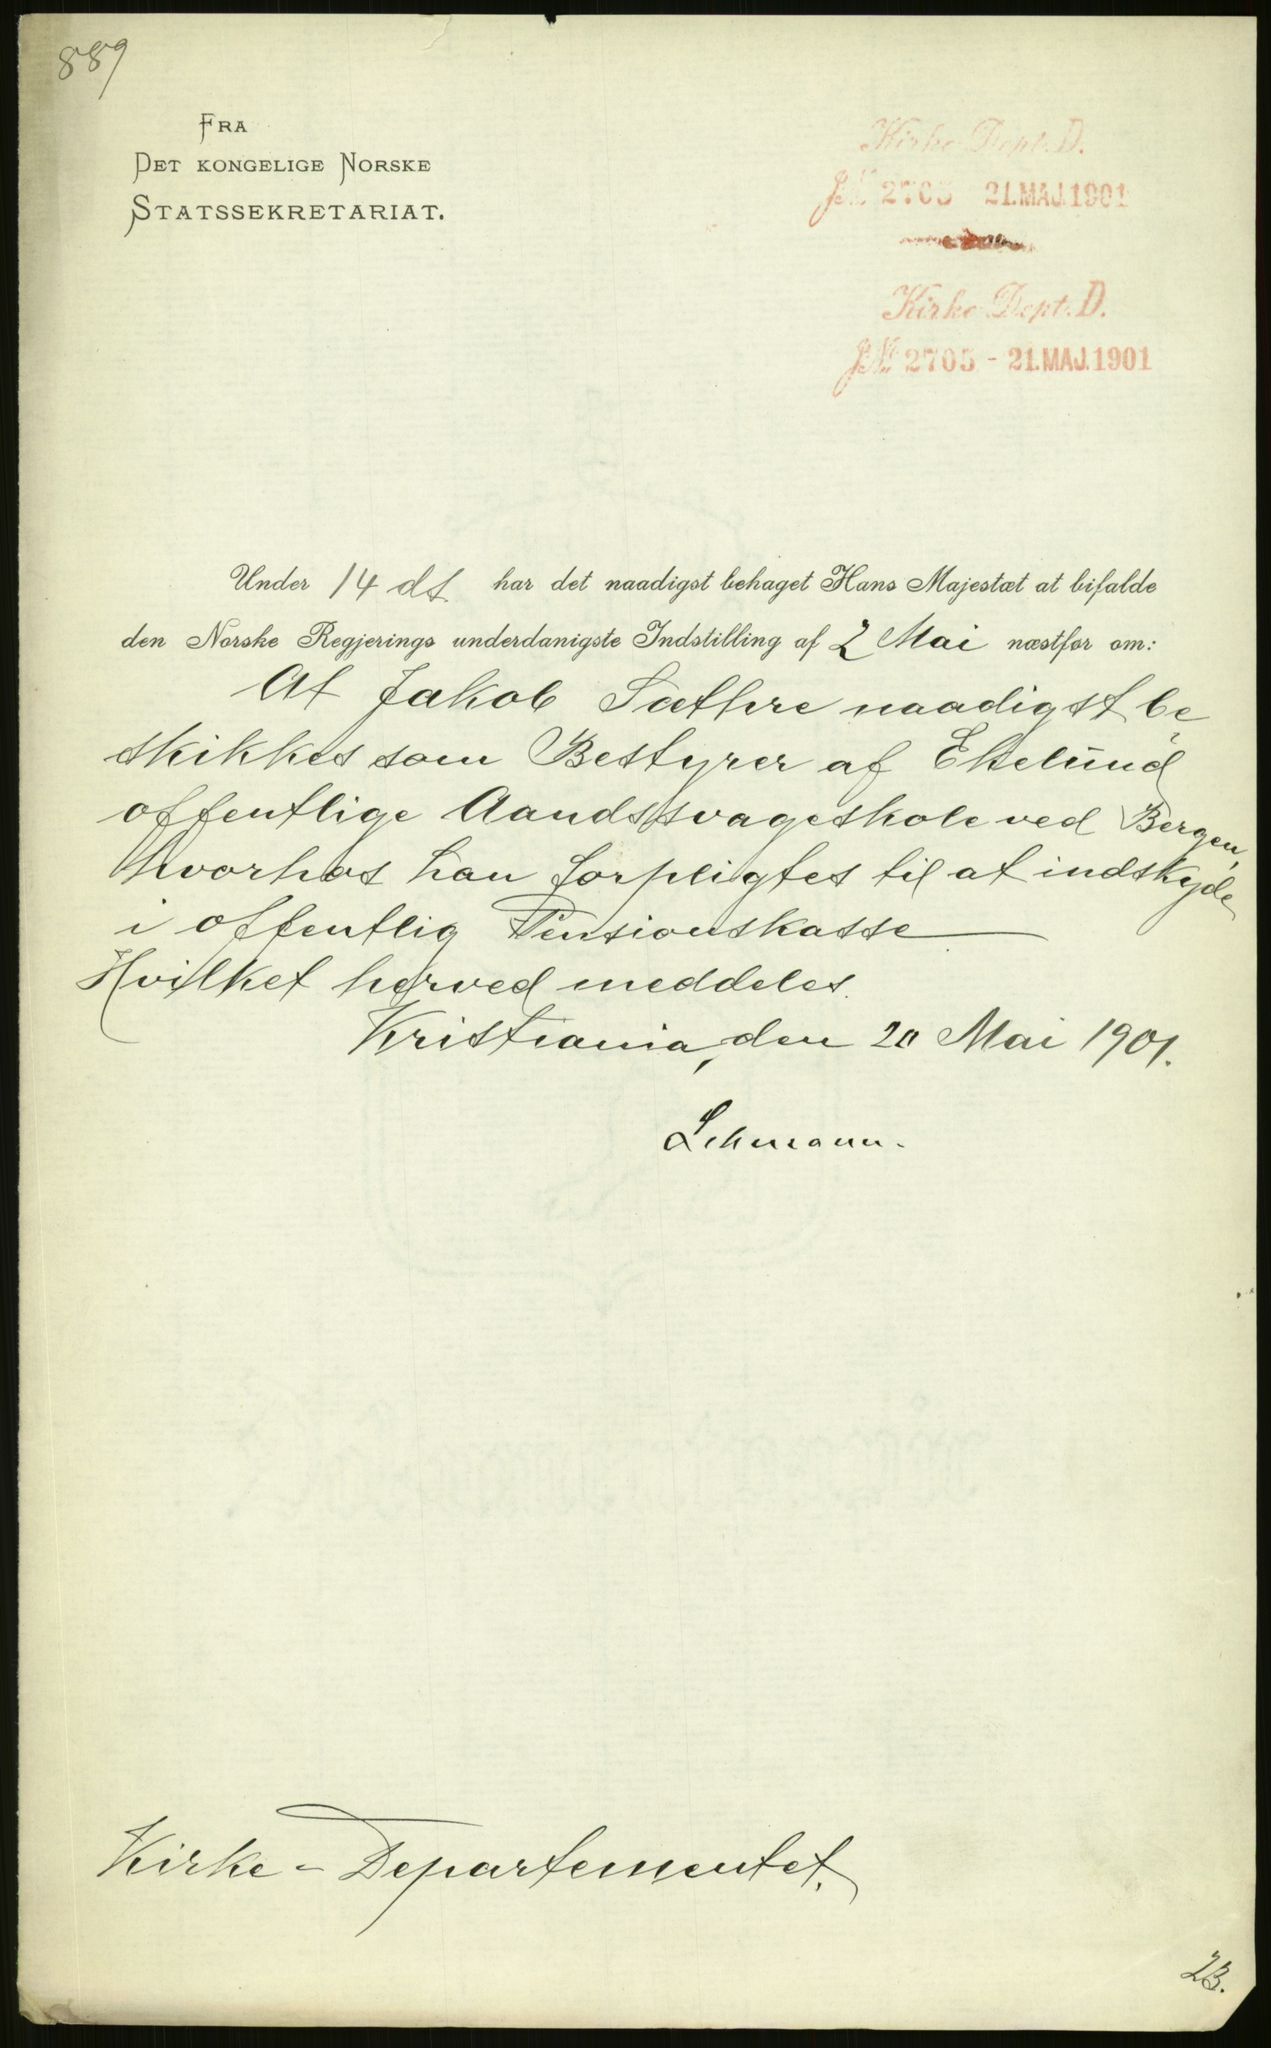 889
FRA
DET KONGELIGE NORSKE
STATSSEKRETARIAT.
Kirke-Dept. D.
J.№ 2705 21.MAJ.1901
Kirke-Dept. D.
J.№ 2705 - 21.MAJ.1901
Under 14 ds. har det naadigst behaget Hans Majestæt at bifalde
den Norske Regjerings underdanigste Indstilling af 2 Mai næstfør om:
At Jakob Sæthre naadigst be
skikkes som Bestyrer af Ekelund
offentlige Aandssvageskole ved Bergen,
hvorhos han forpligtes til at indskyde
i offentlig Pensionskasse
Hvilket herved meddeles.
Kristiania, den 20 Mai 1901.
Lehmann.
Kirke-Departementet.
23.